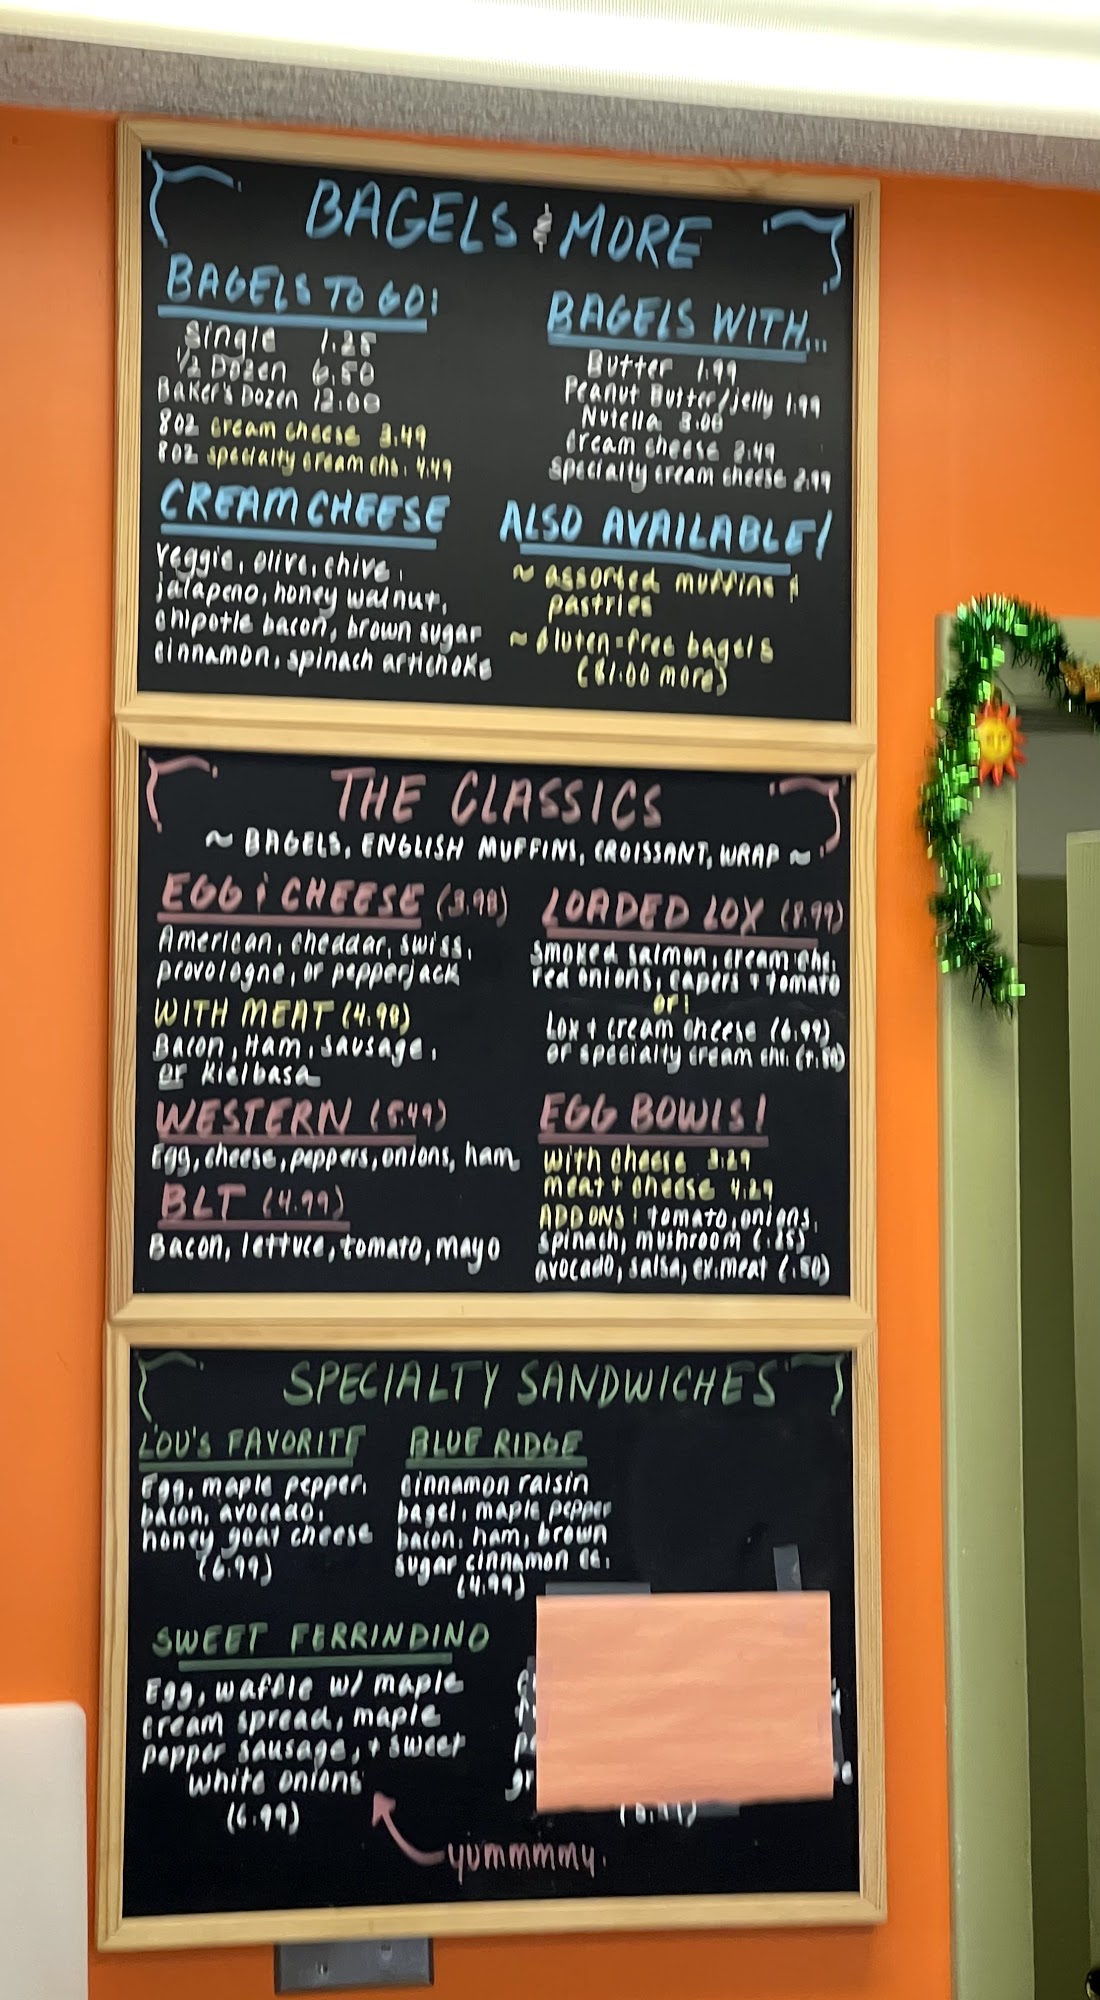 BAGELS & MORE
BAGELS TO GO:
Single 1.25
1/2 Dozen 6.50
Baker's Dozen 12.00
8oz cream cheese 3.49
8oz specialty cream chs. 4.49
BAGELS WITH...
Butter 1.99
Peanut Butter/jelly 1.99
Nutella 3.00
cream cheese 2.49
specialty cream cheese 2.99
CREAM CHEESE
veggie, olive, chive,
jalapeno, honey walnut,
chipotle bacon, brown sugar
cinnamon, spinach artichoke
ALSO AVAILABLE!
~ assorted muffins &
pastries
~ Gluten-free bagels
($1.00 more)
THE CLASSICS
~ BAGELS, ENGLISH MUFFINS, CROISSANT, WRAP ~
EGG & CHEESE (3.98)
American, cheddar, swiss,
provologne, or pepperjack
WITH MEAT (4.98)
Bacon, Ham, Sausage,
or Kielbasa
WESTERN (5.49)
Egg, cheese, peppers, onions, ham
BLT (4.99)
Bacon, lettuce, tomato, mayo
LOADED LOX (8.99)
smoked salmon, cream chs.
red onions, capers + tomato
or:
Lox + cream cheese (6.99)
or specialty cream chs.
EGG BOWLS!
with cheese 3.29
meat + cheese 4.29
ADD ONS: tomato, onions,
spinach, mushroom (.25)
avocado, salsa, ex.meat (.50)
SPECIALTY SANDWICHES
LOU'S FAVORITE
Egg, maple pepper,
bacon, avocado,
honey goat cheese
(6.99)
BLUE RIDGE
cinnamon raisin
bagel, maple pepper
bacon, ham, brown
sugar cinnamon cc.
(4.99)
SWEET FERRINDINO
Egg, waffle w/ maple
cream spread, maple
pepper sausage, + sweet
white onions
(6.99)
yummmmy.